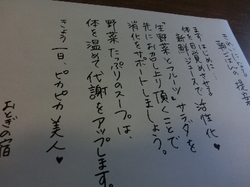 まず、はじめに…
体を目覚めさせる
体・新鮮ジュースで活性化♥
"生野菜とフルーツ"サラダを
先にお召し上り頂くことで
消化をサポートしましょう。
野菜たっぷりのスープは、
体を温めて代謝をアップします。
きょう一日、ピカピカ美人♥
おとぎの宿